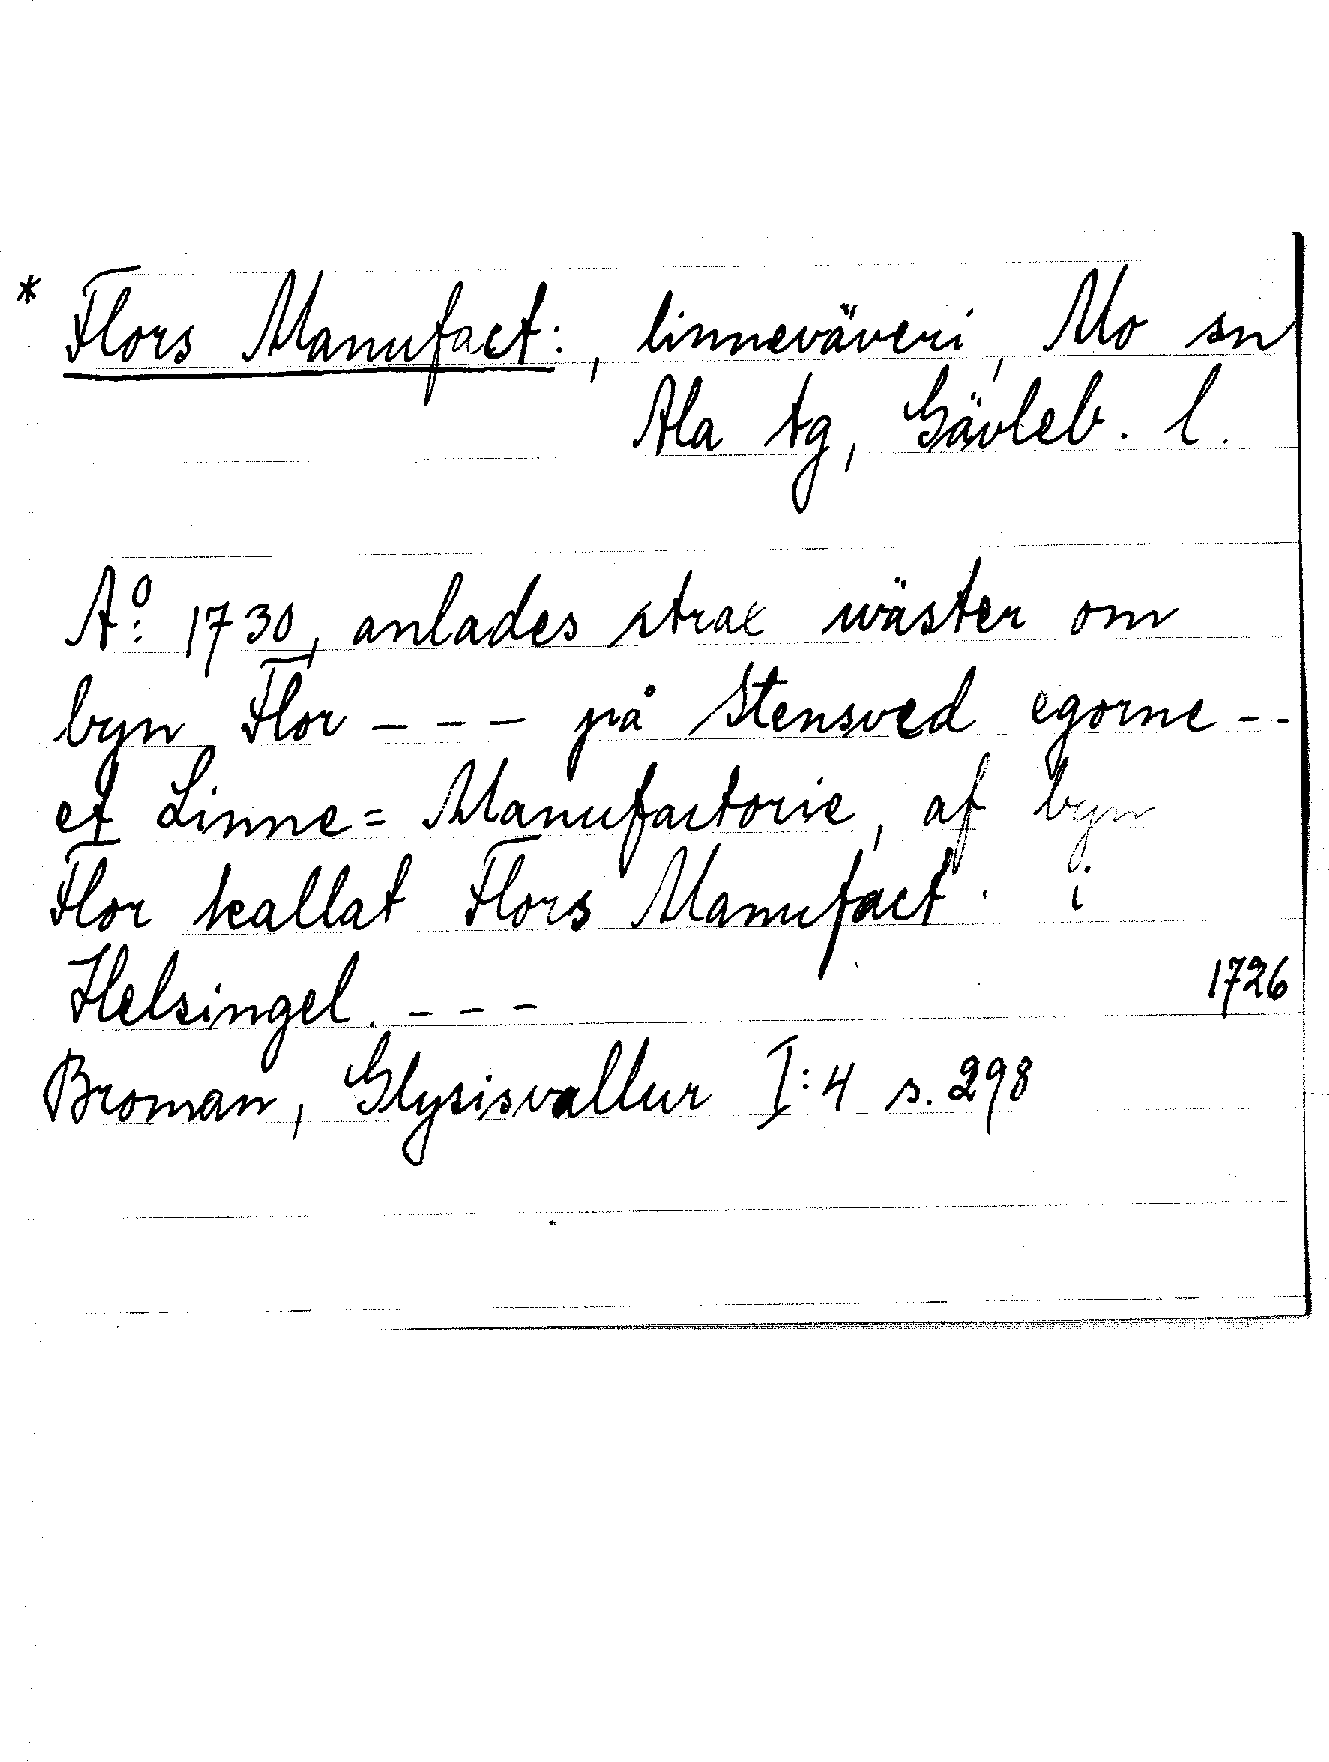 * Flors Manufact:, linneväveri, Mo sn
Ala tg, Gävleb. l.
A:o 1730, anlades strax wäster om
byn Flor – – – på Stensved egorne – –
et Linne= Manufactorie, af byn
Flor kallat Flors Manufact. i
Helsingel. – – –
1726
Broman, Glysisvallur I:4 s. 298